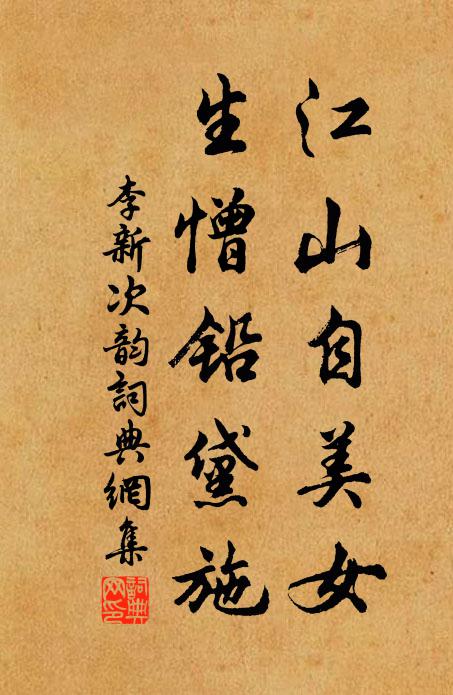 江山自美女
生憎铅黛施
李新次韵詞典網集
詞典
网印